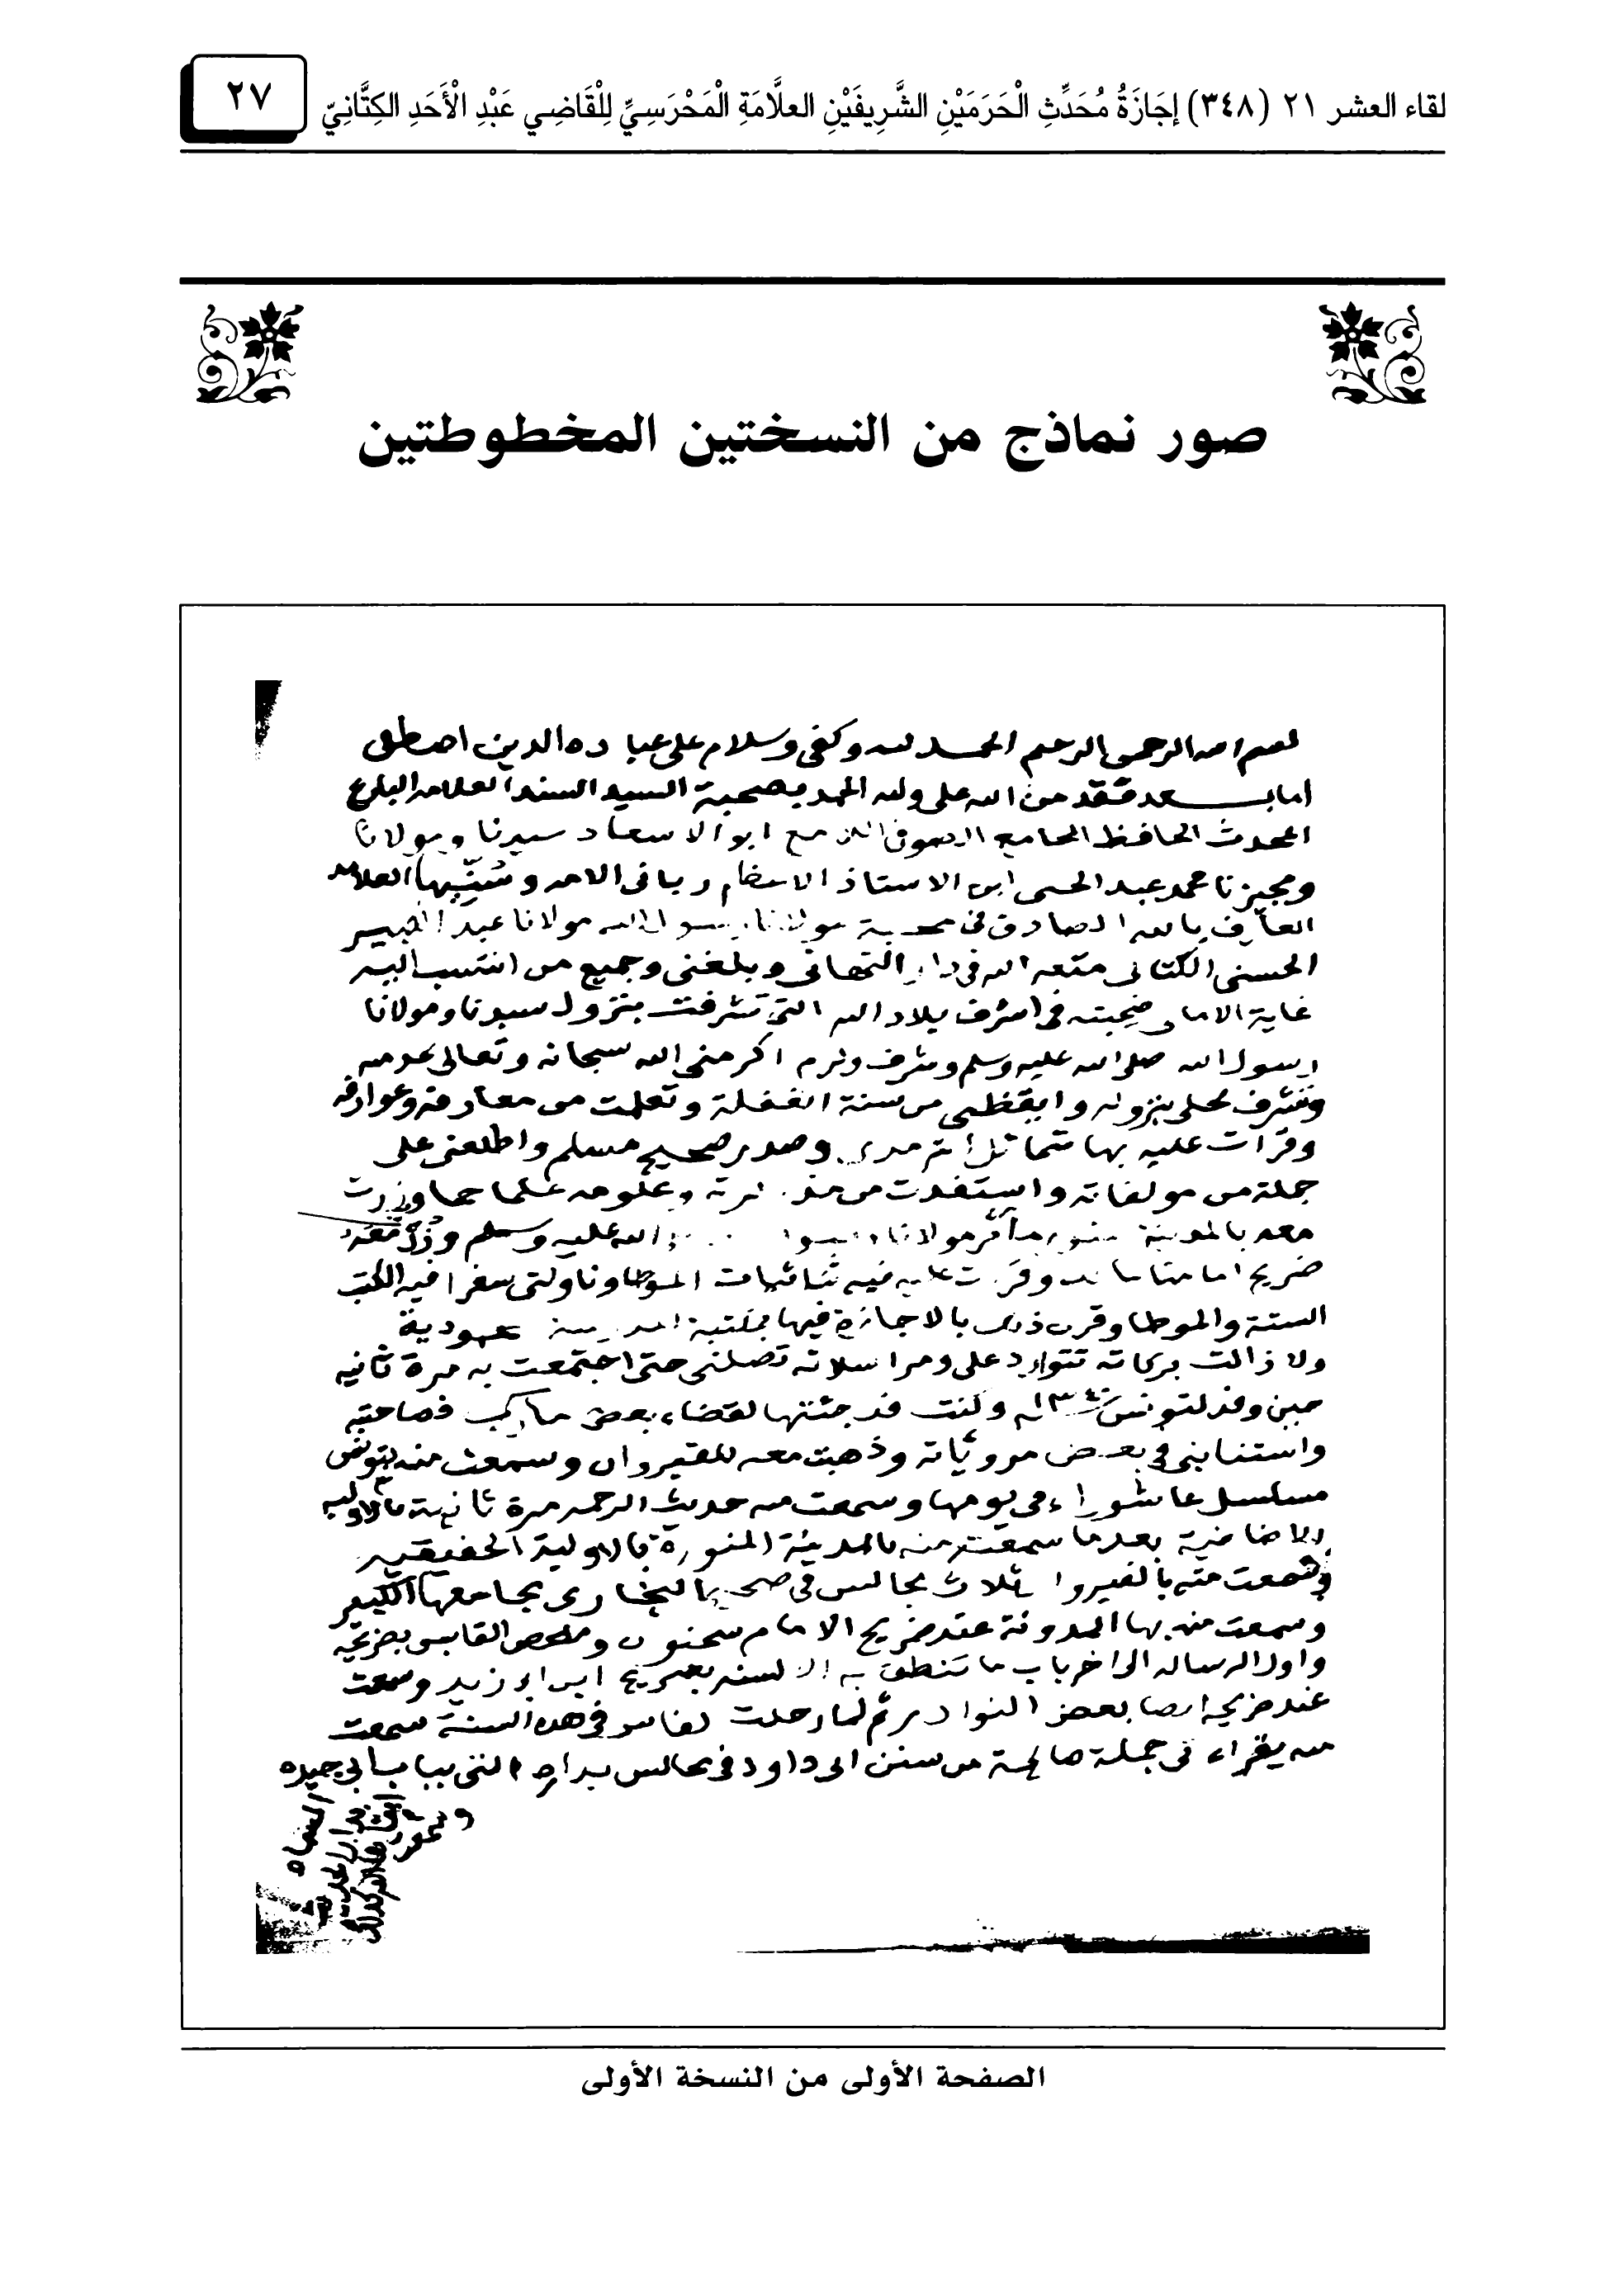 لقاء العشر ٢١ (٣٤٨) إِجَازَةُ مُحَدِّثِ الْحَرَمَيْنِ الشَّرِيفَيْنِ العلَّامَةِ الْمَحْرَسِيِّ لِلْقَاضِي عَبْدِ الْأَحَدِ الكِتَّانِيّ
٢٧
صور نماذج من النسختين المخطوطتين
بسم الله الرحمن الرحيم الحمد لله وكفى وسلام على عباده الذين اصطفى
اما بعد فقد من الله على وله الحمد بصحبة السيد السند العلامه البليغ
المحدث الحافظ الجامع الصوفي ابو الاسعاد سيدنا ومولانا
ومجيزنا محمد عبد الحي ابن الاستاذ الاعظم رباني الامه العلامه
العارف بالله الصادق في محبة مولانا رسول الله مولانا عبد الكبير
الحسني الكتاني متعه الله في دار التهاني وبلغني وجميع من انتسب اليه
غاية الاماني صحبته في اشرف بلاد الله التي تشرفت بنزول سيدنا ومولانا
رسول الله صلى الله عليه وسلم وشرف وكرم اكرمني الله سبحانه وتعالى
وتشرف محلي بنزوله وايقظني من سنة الغفلة وتعلمت من معارفه وعوارفه
وقرات عليه بها شمائل الترمذي وصدر صحيح مسلم واطلعني على
جملة من مولفاته واستفدت من وعلومه وزرت
معه بالمدينة مآثر مولانا رسول الله عليه وسلم وزرت معه
ضريح امامنا مالك وقرات عليه فيه ثنائيات الموطا وناولني سفرا فيه الكتب
الستة والموطا وقرن ذلك بالاجازة فيها بمكتبة المدرسة
ولا زالت بركاته تتوارد على ومراسلاته تصلني حتى اجتمعت به مرة ثانيه
حين وفد لتونس سنة ١٣٤٠ وكنت قد جئتها لقضاء بعض فصاحبته
واستنابني في بعض مروياته وذهبت معه للقيروان وسمعت منه بتونس
مسلسل عاشوراء في يومها وسمعت منه حديث الرحمه مرة ثانية بالاوليه
الاضافية بعدما سمعته منه بالمدينة المنورة بالاولية الحقيقيه
وسمعت منه بالقيروان ثلاث مجالس في صحيح البخاري بجامعها الكبير
وسمعت منه بها المدونة عند ضريح الامام سحنون وملخص القابسي بضريحه
واول الرساله الى اخر باب ما تنطق به الالسنه بضريح ابن ابي زيد وسمعت
عند ضريحه ايضا بعض النوادر ثم لما رحلت لفاس في هذه السنة سمعت
منه بقراءتي جملة صالحة من سنن ابي داود في مجالس بداره التي بباب
الصفحة الأولى من النسخة الأولى